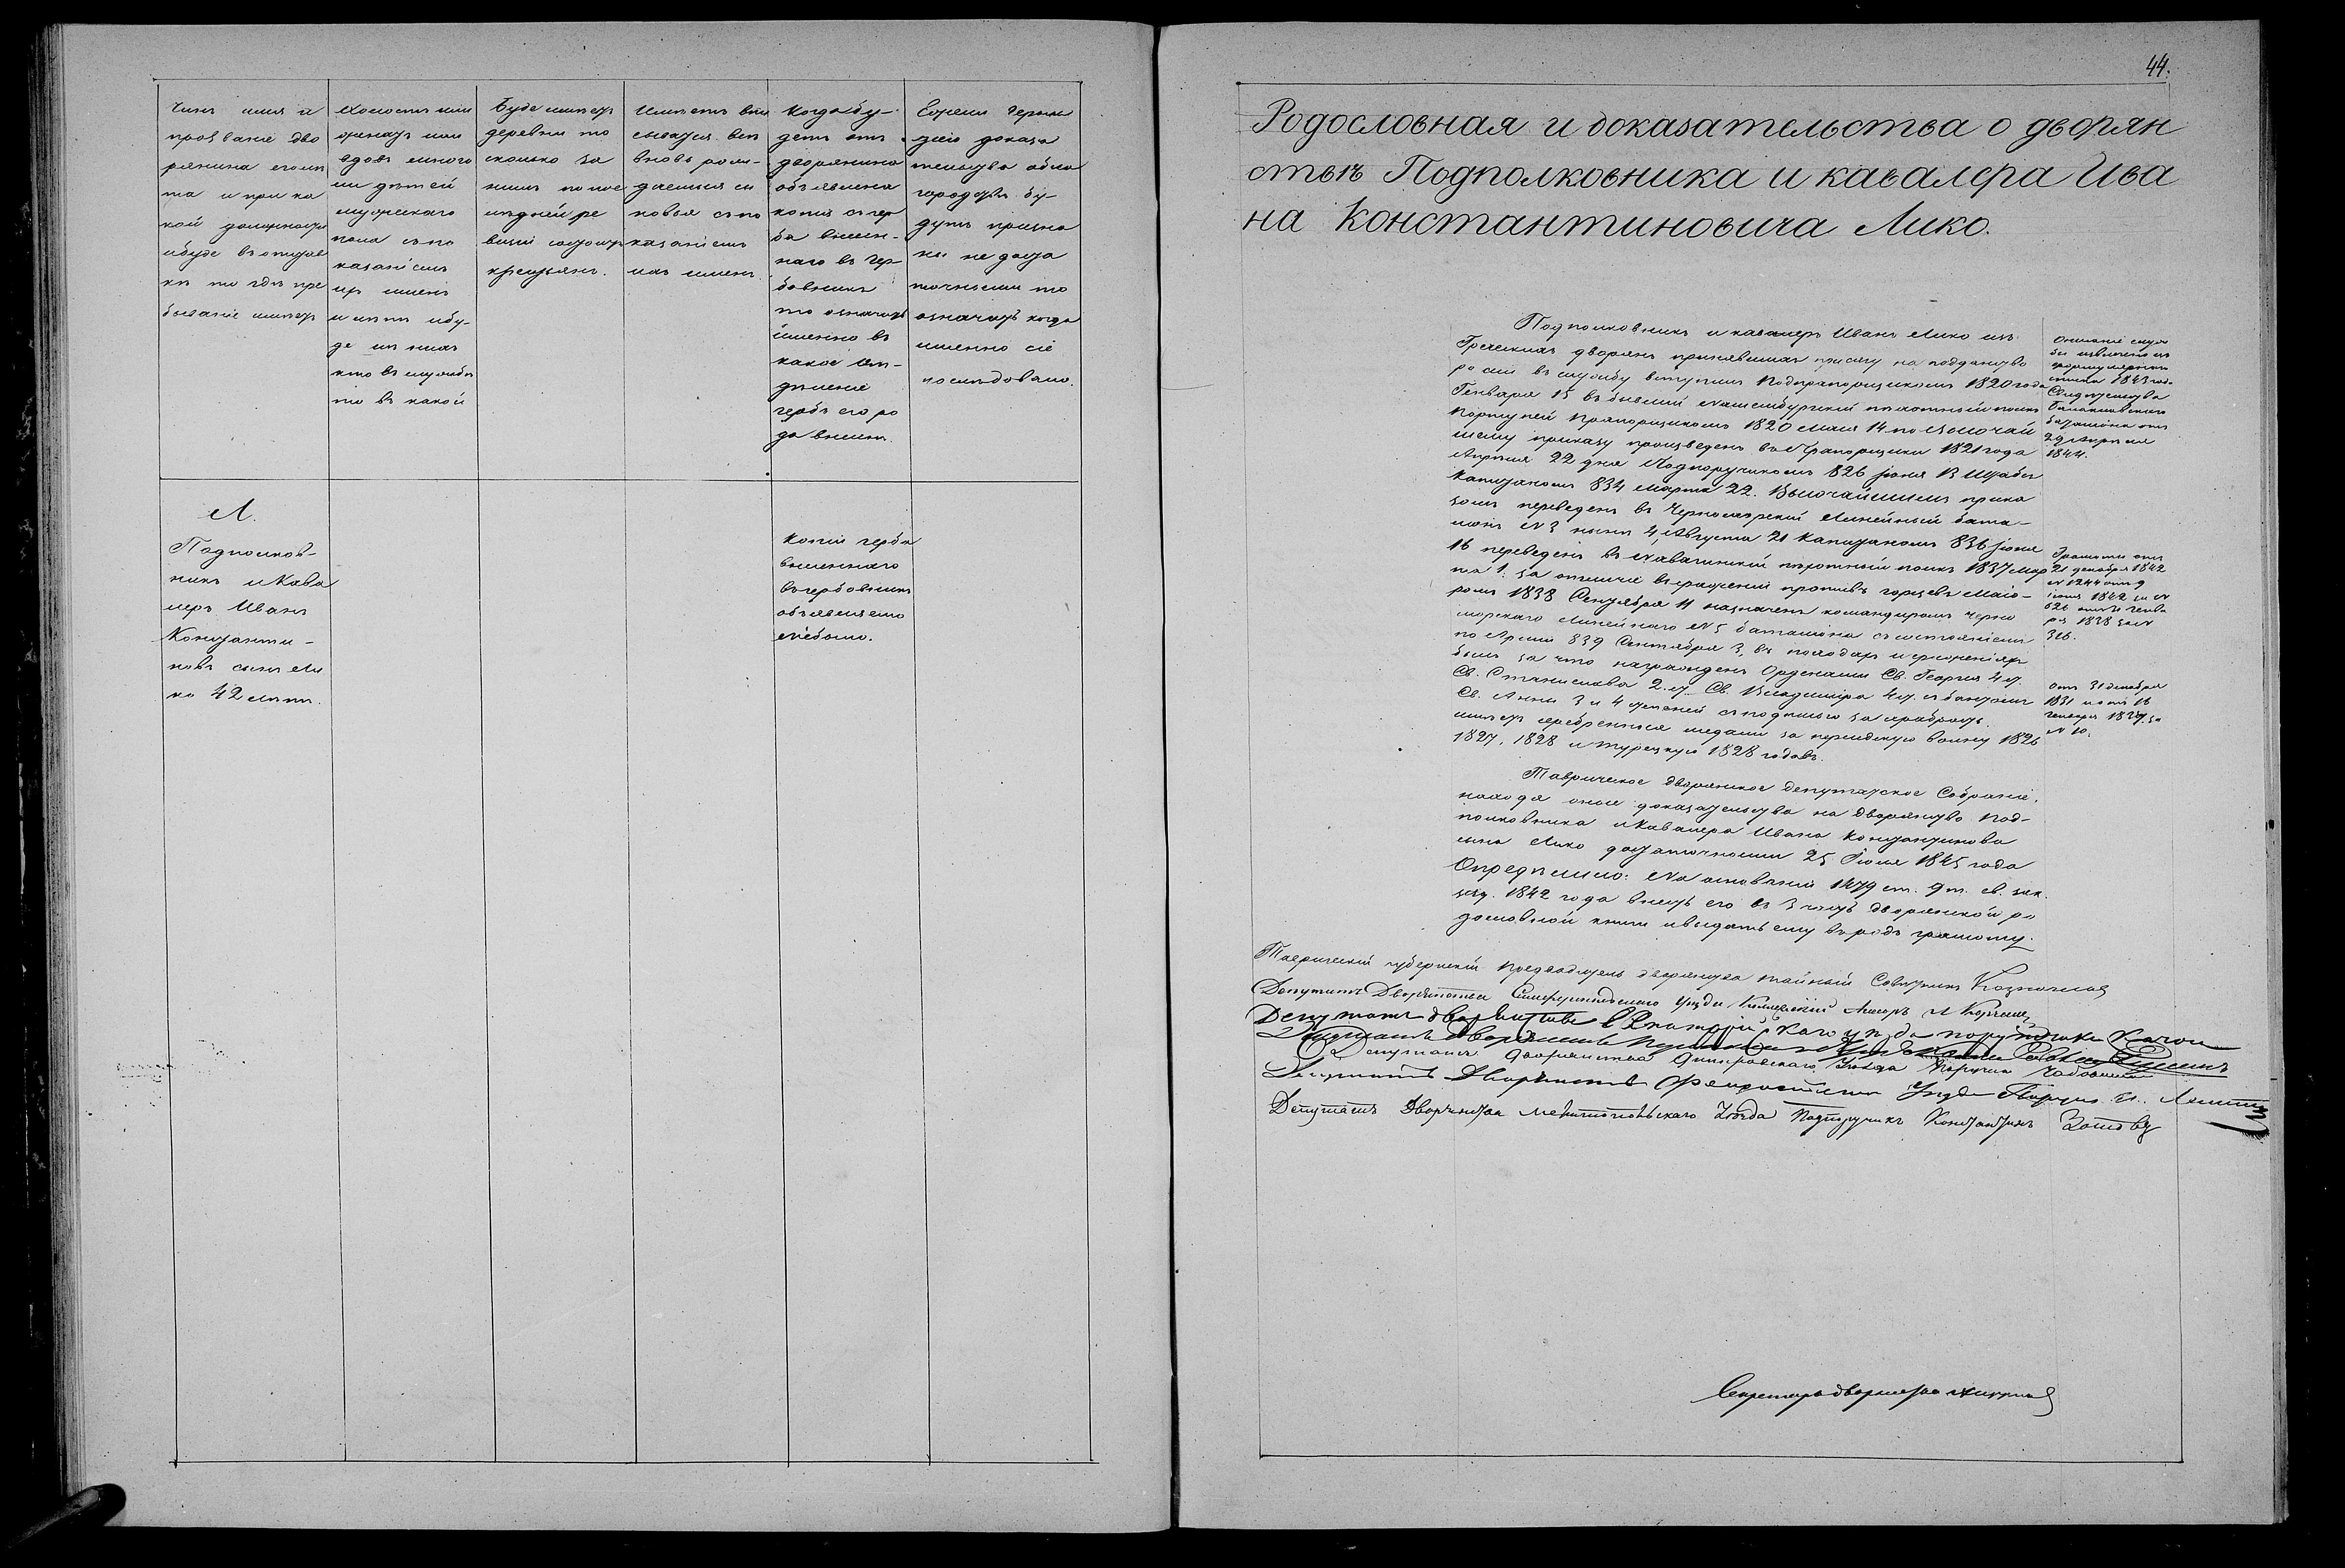 Чинъ имя и
прозваніе дво
рянина его лѣ
та и при ка
кой должности
и буде въ отстав
кѣ то гдѣ пре
бываніе имѣетъ
Холостъ или
женатъ или
вдовъ и много
ли дѣтей
мужескаго
пола съ по
казаніемъ
ихъ именъ
и лѣтъ и бу-
де изъ нихъ
кто въ службѣ
то въ какой
Буде имѣетъ
деревни то
сколько за
нимъ по пос
лѣдней ре
визіи состоитъ
крестьянъ.
Имѣетъ впи
сыватся всѣ
вновь рож-
даемыя сы
новья съ по
казаніемъ
ихъ именъ
Когда бу-
детъ отъ
дворянина
объявлена
копія съ гер
ба внесен-
наго въ гер-
бовникъ
то означать
именно въ
какое от-
дѣленіе
гербъ его ро
да внесен
Ежели герольд
діею доказа
тельства о бла
городствѣ бу-
дутъ призна
ны не доста
точными то
означать когда
именно сіе
послѣдовало.
Л.
Подполков-
никъ и Кава
леръ Иванъ
Константи-
новъ сынъ Ли
ко 42 лѣтъ.
Копіи герба
внесеннаго
въ гербовникъ
объявляемо
небыло.
44.
Родословная и доказательства о дворян
ствѣ Подполковника и кавалера Ива
на Константиновича Лико.
Подполковникъ и кавалеръ Иванъ Лико изъ
Греческихъ дворянъ принявшихъ присягу на подданство
россіи въ службу вступилъ Подпрапорщикомъ 1820 года
Генваря 15 въ бывшій Нашебургскій пѣхотный полкъ
Портупей Прапорщикомъ 1820 Мая 14 по Высочай
шему приказу произведенъ въ Прапорщики 1821 года
Апрѣля 22 дня Подпоручикомъ 826 іюня 13 Штабсъ
Капитаномъ 834 Марта 22. Высочайшимъ прика
зомъ переведенъ въ Черноморскій Линейный бата-
ліонъ № 3 нынѣ 4, Августа 21 Капитаномъ 836 іюня
16 переведенъ въ Навагинскій пѣхотный полкъ 1837 Мар
та 1. за отличіе въ сраженіи противъ горцевъ Маіо-
ромъ 1838 Сентября 11 назначенъ командиромъ Черно
морскаго Линейнаго № 5 баталіона съ состояніемъ
по Арміи 839 Сентября 3, въ походахъ и сраженіяхъ
былъ за что награжденъ Орденами Св. Георгія 4 ст.
Св. Станислава 2. ст. Св. Владиміра 4 ст. съ бантомъ
Св. Анны 3 и 4 степеней съ подписью за храбрость.
имѣетъ серебренныя медали за персидскую войну 1826
1827, 1828 и турецкую 1828 годовъ.
Описаніе служ
бы извлечено изъ
формулярнаго
списка 1843 года
Свидѣтельства
Балаклавскаго
баталіона отъ
29 Апрѣля
1844.
Грамоты отъ
21 декабря 1842
№ 1244 отъ 9
іюня 1842 за №
526 отъ 31 генва
ря 1838 за №
326.
отъ 31 декабря
1831 и отъ 16
генваря 1827 за
№ 10.
Таврическое дворянское Депутатское Собраніе,
находя оные доказательства на дворянство Под-
полковника и Кавалера Ивана Константинова
сына Лико достаточными 25 Іюля 1845 года
Опредѣлило: На основаніи 1479 ст. 9 т. св. зак.
изд. 1842 года внесть его въ 3 часть дворянской ро
дословной книги и выдать ему въ родъ грамоту.
Таврическій губернскій Предводитель дворянства тайный Совѣтникъ Казначеев
Депутатъ Дворянства Симферопольскаго Уѣзда
Депутатъ дворянства Евпаторійскаго уѣзда
Депутатъ Дворянства
Депутатъ дворянства Днѣпровскаго Уѣзда Поручикъ
Депутатъ Дворянства Феодосійскаго Уѣзда
Депутатъ Дворянства Мелитопольскаго Уѣзда Подпоручикъ Константинъ Зотовъ
Секретарь дворянства